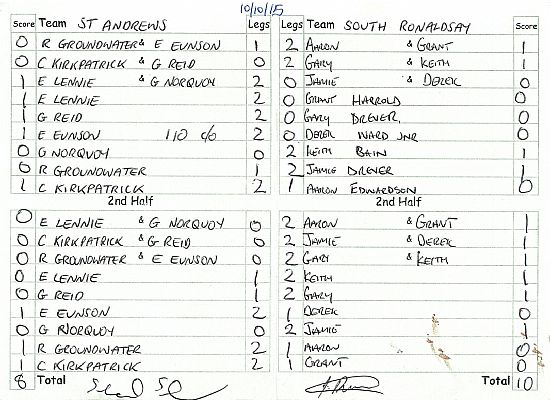 10/10/15
Score Team ST ANDREWS Legs Legs Team SOUTH RONALDSAY Score
0 R GROUNDWATER & E EUNSON 1 2 AARON & GRANT 1
0 C KIRKPATRICK & G REID 0 2 GARY & KEITH 1
1 E LENNIE & G NORQUOY 2 0 JAMIE & DEREK 0
1 E LENNIE 2 0 GRANT HARROLD 0
1 G REID 2 0 GARY DREVER 0
1 E EUNSON 110 c/o 2 0 DEREK WARD JNR 0
0 G NORQUOY 0 2 KEITH BAIN 1
0 R GROUNDWATER 1 2 JAMIE DREVER 1
1 C KIRKPATRICK 2 1 AARON EDWARDSON 0
2nd Half 2nd Half
0 E LENNIE & G NORQUOY 0 2 AARON & GRANT 1
0 C KIRKPATRICK & G REID 0 2 JAMIE & DEREK 1
0 R GROUNDWATER & E EUNSON 0 2 GARY & KEITH 1
0 E LENNIE 1 2 KEITH 1
0 G REID 1 2 GARY 1
1 E EUNSON 2 1 DEREK 0
0 G NORQUOY 0 2 JAMIE 1
1 R GROUNDWATER 2 1 AARON 0
1 C KIRKPATRICK 2 1 GRANT 0
8 Total Total 10